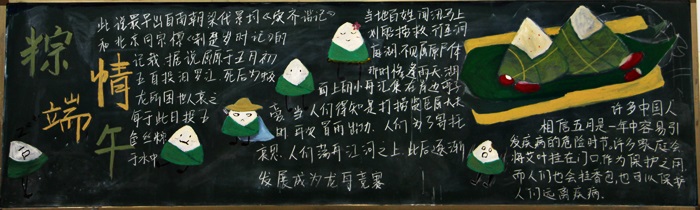 粽情端午
此说最早出自南朝梁代吴均《续齐谐记》
和北京周宗檩《荆楚岁时记》的
记载。据说,屈原于五月初
五自投汨罗江,死后为蛟
龙所困,世人哀之,
每于此日投五
色丝粽
于水中
当地百姓闻讯马上
划船捞救,行至洞
庭湖,不见屈原尸体
那时,恰逢雨天,湖
面上的小舟汇集在岸边亭子
旁。当人们得知是打捞贤臣屈大夫
时,再次冒雨出动,人们为了寄托
哀思,人们荡舟江河之上,此后逐渐
发展成为龙舟竞赛
许多中国人
相信五月是一年中容易引
发疾病的危险时节,许多家庭会
将艾叶挂在门口作为保护之用
而人们也会挂香包,也可以保护
人们远离疾病.